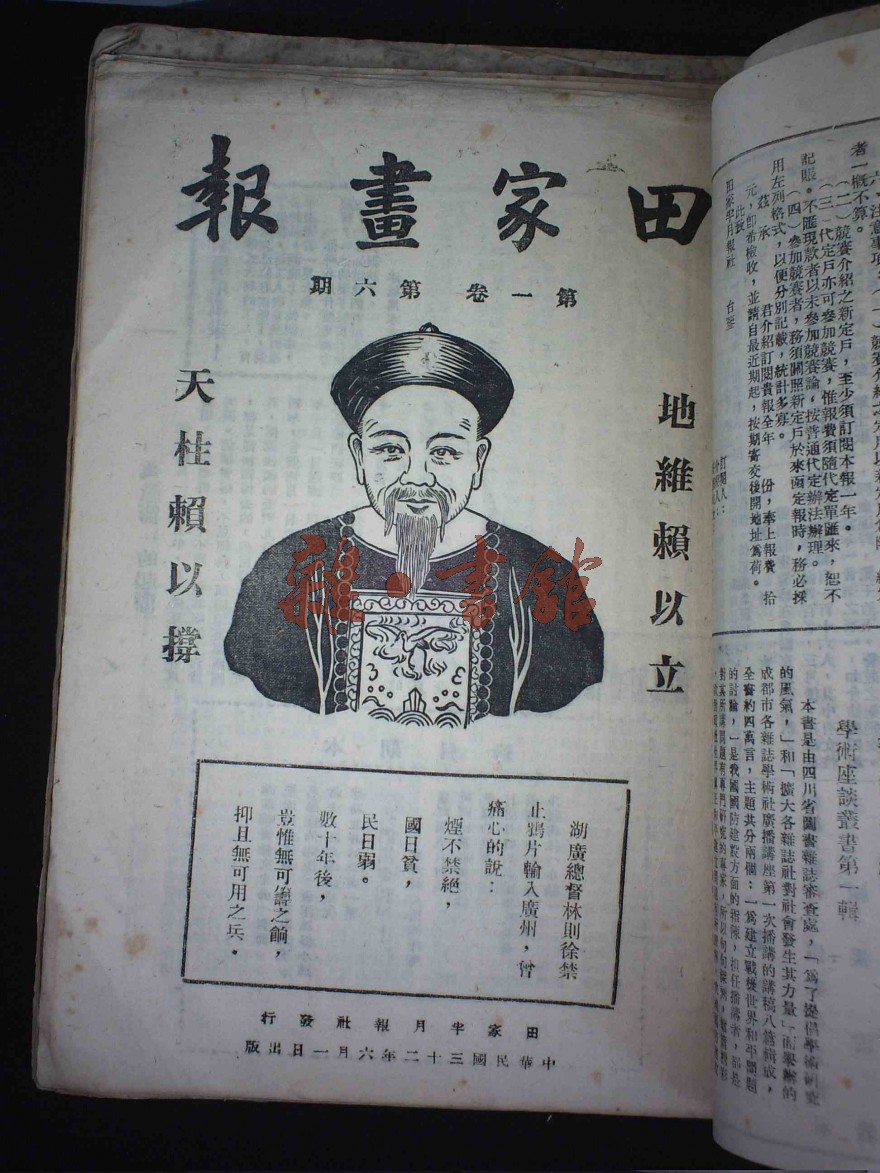 田家畫報
第一卷 第六期
地維賴以立
天柱賴以撐
雜·書館
湖廣總督林則徐禁
止鴉片輸入廣州，曾
痛心的說：
煙不禁絕，
國日貧，
民日弱。
數十年後，
豈惟無可籌之餉，
抑且無可用之兵。
田家半月報社發行
中華民國三十二年六月一日出版
者一概不算。
（二）競賽介紹之新定戶，至少須訂閱本報一年。
（三）代定戶亦可參加競賽，惟報費須隨代定單匯來，恕不
記賬。不匯現款者以未參加競賽論，按普通代定辦法辦理。
（四）參加競賽者，務須關照新定戶於來函定報時，務必採
用左列格式，以便分別記載，統計多寡。
茲承 君介紹訂閱貴報全年 份，奉上報費 拾
元，即希檢收，並請自最近期起，按期寄交後開地址為荷。
此致
田家半月報社 台鑒
學術座談叢書第一輯
本書是由四川省圖書雜誌審查處，「為了提倡學術研究
的風氣，」和「擴大各雜誌社對社會發生其力量」而舉辦的
成都市各雜誌學術社廣播講座第一次播講的講稿八篇輯成，
全書約四萬言，主題共分兩個：一為建立戰後世界和平問題
的討論，一是我國國防建設方面的指陳，担任播講者，都是